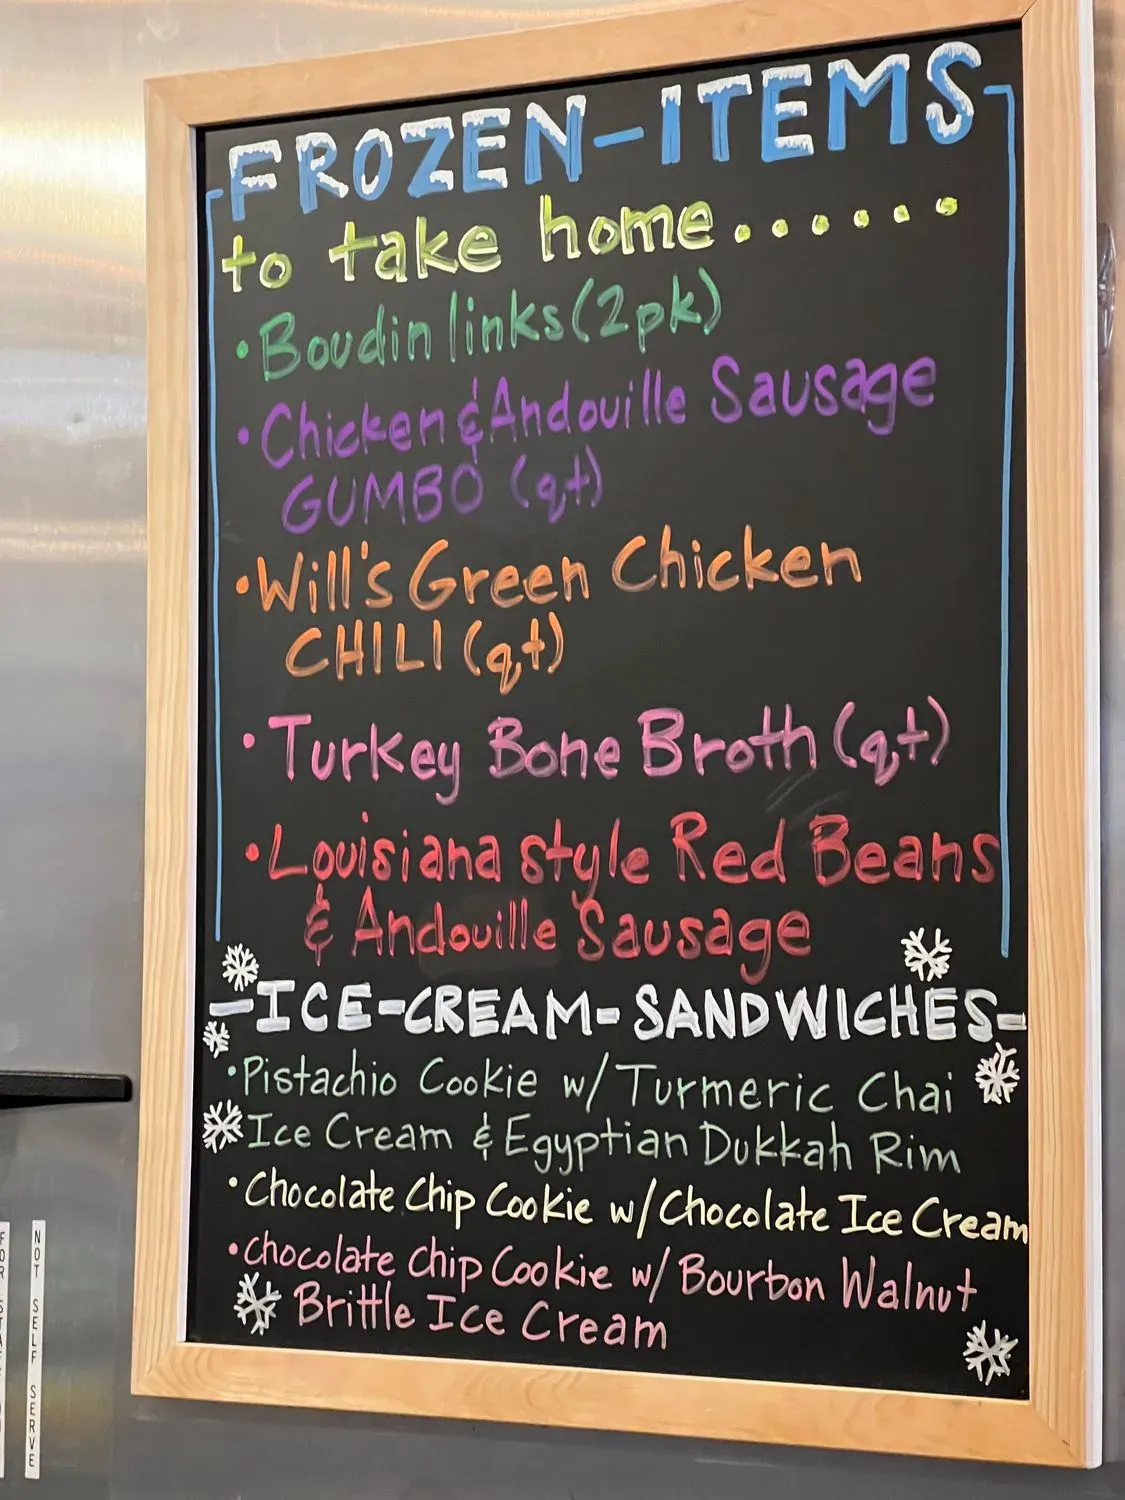 FROZEN-ITEMS
to take home......
• Boudin links (2pk)
• Chicken & Andouille Sausage
GUMBO (qt)
• Will's Green Chicken
CHILI (qt)
• Turkey Bone Broth (qt)
• Louisiana style Red Beans
& Andouille Sausage
-ICE-CREAM-SANDWICHES-
• Pistachio Cookie w/ Turmeric Chai
Ice Cream & Egyptian Dukkah Rim
• Chocolate Chip Cookie w/ Chocolate Ice Cream
• Chocolate Chip Cookie w/ Bourbon Walnut
Brittle Ice Cream
FOR
NOT SELF SERVE